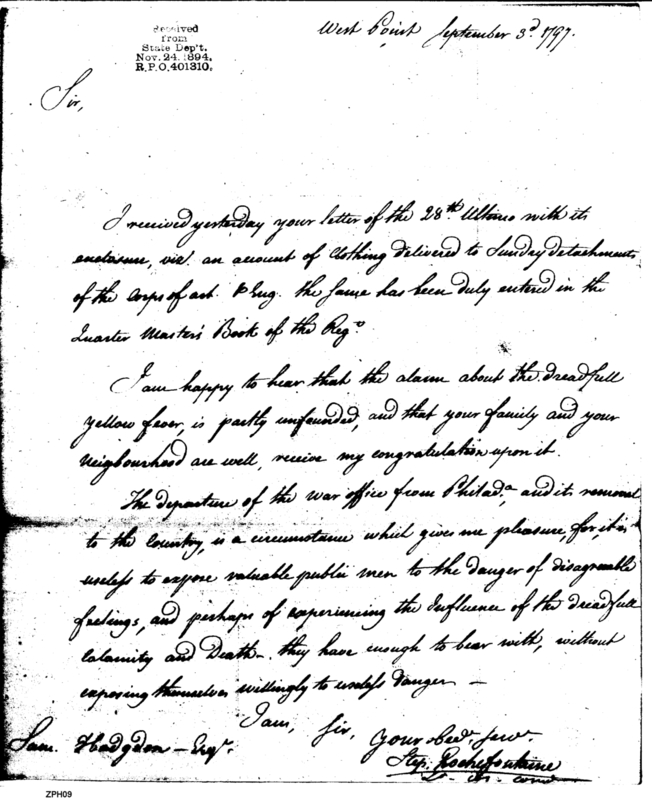 Received
from
State Dep't.
Nov. 24. 1894.
R.P.O. 401310.
West Point September 3d. 1797.
Sir,
I received yesterday your letter of the 28th. Ultimo with its
enclosure, viz. an account of Clothing delivered to Sundry detachments
of the Corps of art. & Eng. the Same has been duly entered in the
Quarter Master's Book of the Regt.
I am happy to hear that the alarm about the dreadfull
yellow fever, is partly unfounded, and that your family and your
Neigbourhood are well, receive my congratulation upon it.
The departure of the War office from Philada. and its removal
to the Country, is a circumstance which gives me pleasure, for, it is
useless to expose valuable public men to the danger of disagreeable
feelings, and perhaps of experiencing the Influence of the dreadfull
Calamity and Death - they have enough to bear with, without
exposing themselves willingly to useless danger -
I am, Sir, your obedt. serv.
Sam. Hodgdon - Esqr.
Step. Rochefontaine
Lt. Col. Comdt
ZPH09